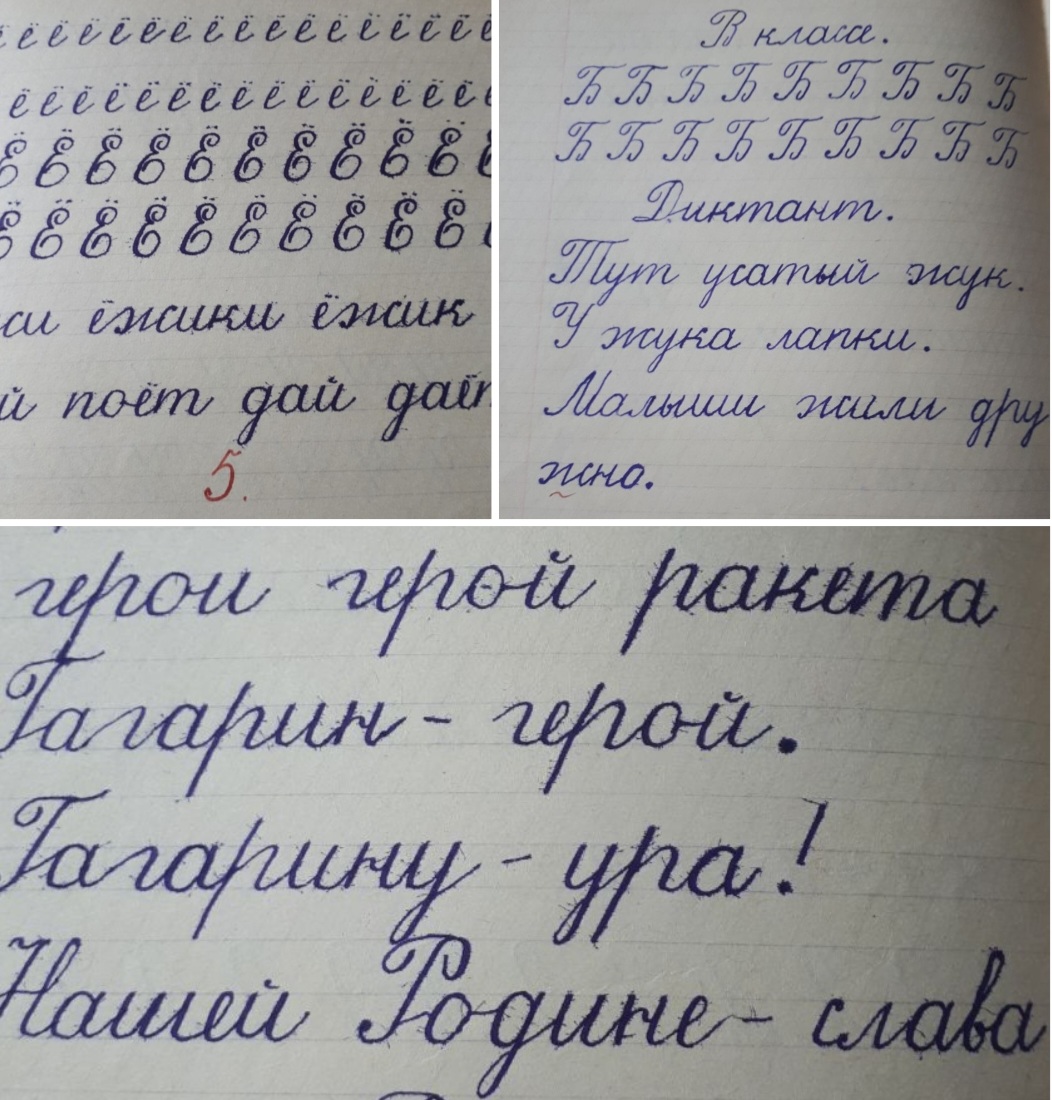 ё ё ё ё ё ё ё ё ё ё ё ё ё ё ё ё
ё ё ё ё ё ё ё ё ё ё ё ё ё ё ё ё
Ё Ё Ё Ё Ё Ё Ё Ё Ё Ё
Ё Ё Ё Ё Ё Ё Ё Ё Ё Ё
ёжики ёжик
й поёт дай даёт
5.
В классе.
Б Б Б Б Б Б Б Б Б
Б Б Б Б Б Б Б Б Б
Диктант.
Тут усатый жук.
У жука лапки.
Малыши жили дру
жно.
герои герой ракета
Гагарин - герой.
Гагарину - ура!
Нашей Родине - слава